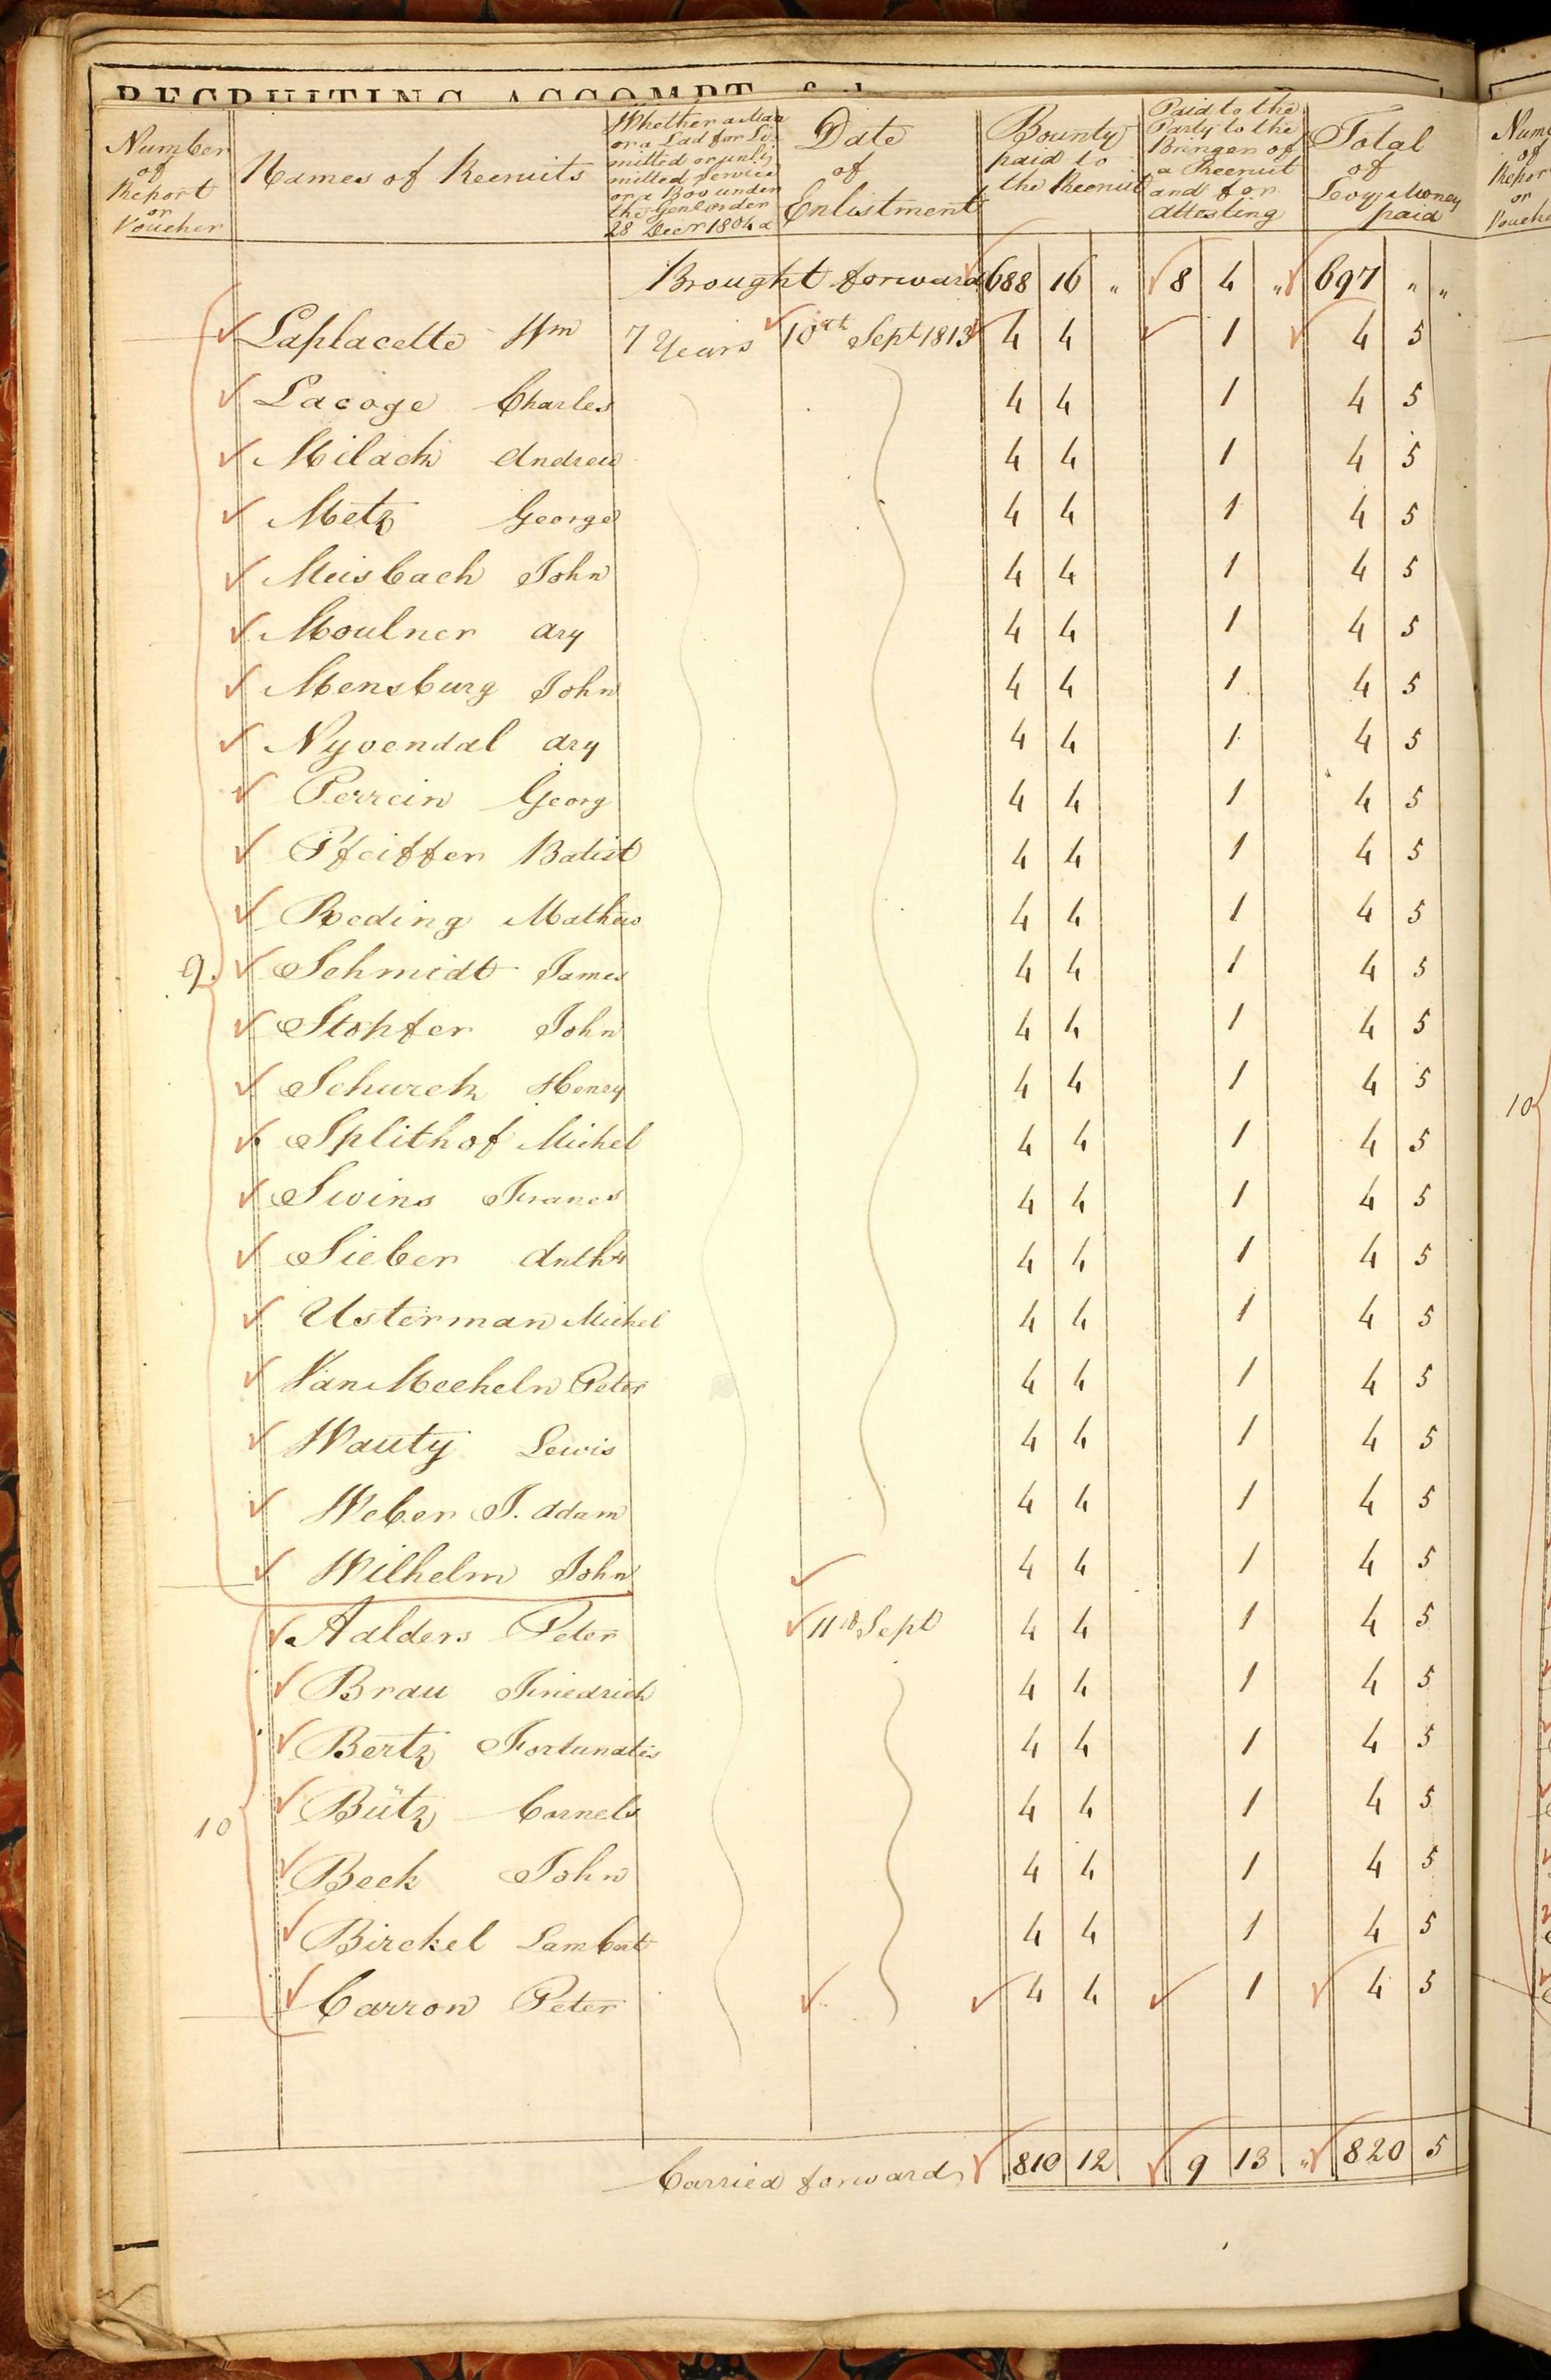 RECRUITING ACCOMPT
Number of Report or Voucher | Names of Recruits | Whether a Man or a Lad for Limitted or unlimitted Service or a Boy under the Genl order 28 Decr 1804 | Date of Enlistment | Bounty paid to the Recruit | Paid to the Party to the Bringer of a Recruit and for attesting | Total of Levy Money paid
Brought forward 688 16 " 8 4 " 697 " "
Laplacette Wm 7 Years 10th Sept 1813 4 4 1 4 5
Lacoge Charles 4 4 1 4 5
Milach Andrew 4 4 1 4 5
Metz George 4 4 1 4 5
Meisbach John 4 4 1 4 5
Moulner Ary 4 4 1 4 5
Mensburg John 4 4 1 4 5
Nyvendal Ary 4 4 1 4 5
Perrein Georg 4 4 1 4 5
Pfeiffer Batist 4 4 1 4 5
Reding Mathew 4 4 1 4 5
9. Schmidt James 4 4 1 4 5
Stopfer John 4 4 1 4 5
Schurch Henry 4 4 1 4 5
Splithof Michel 4 4 1 4 5
Swins Francs 4 4 1 4 5
Sieber Anthy 4 4 1 4 5
Usterman Michel 4 4 1 4 5
Van Mecheln Peter 4 4 1 4 5
Wauty Lewis 4 4 1 4 5
Weber J. Adam 4 4 1 4 5
Wilhelm John 4 4 1 4 5
Aalders Peter 11th Sept 4 4 1 4 5
Brau Friedrich 4 4 1 4 5
Bertz Fortunatis 4 4 1 4 5
10 Bütz Cornels 4 4 1 4 5
Beck John 4 4 1 4 5
Birckel Lambert 4 4 1 4 5
Carron Peter 4 4 1 4 5
Carried forward 810 12 9 13 " 820 5
Report
or
10